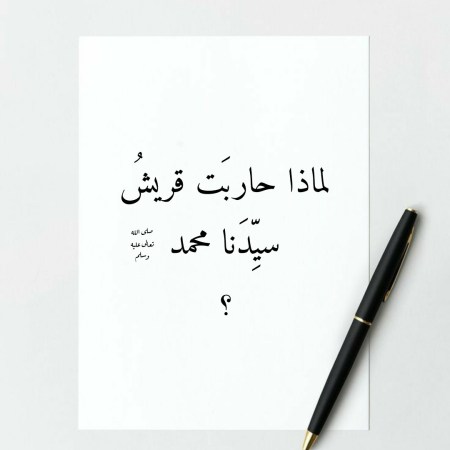 لماذا حاربَت قريشُ
سيِّدَنا محمد صلى الله تعالى عليه وسلم
؟